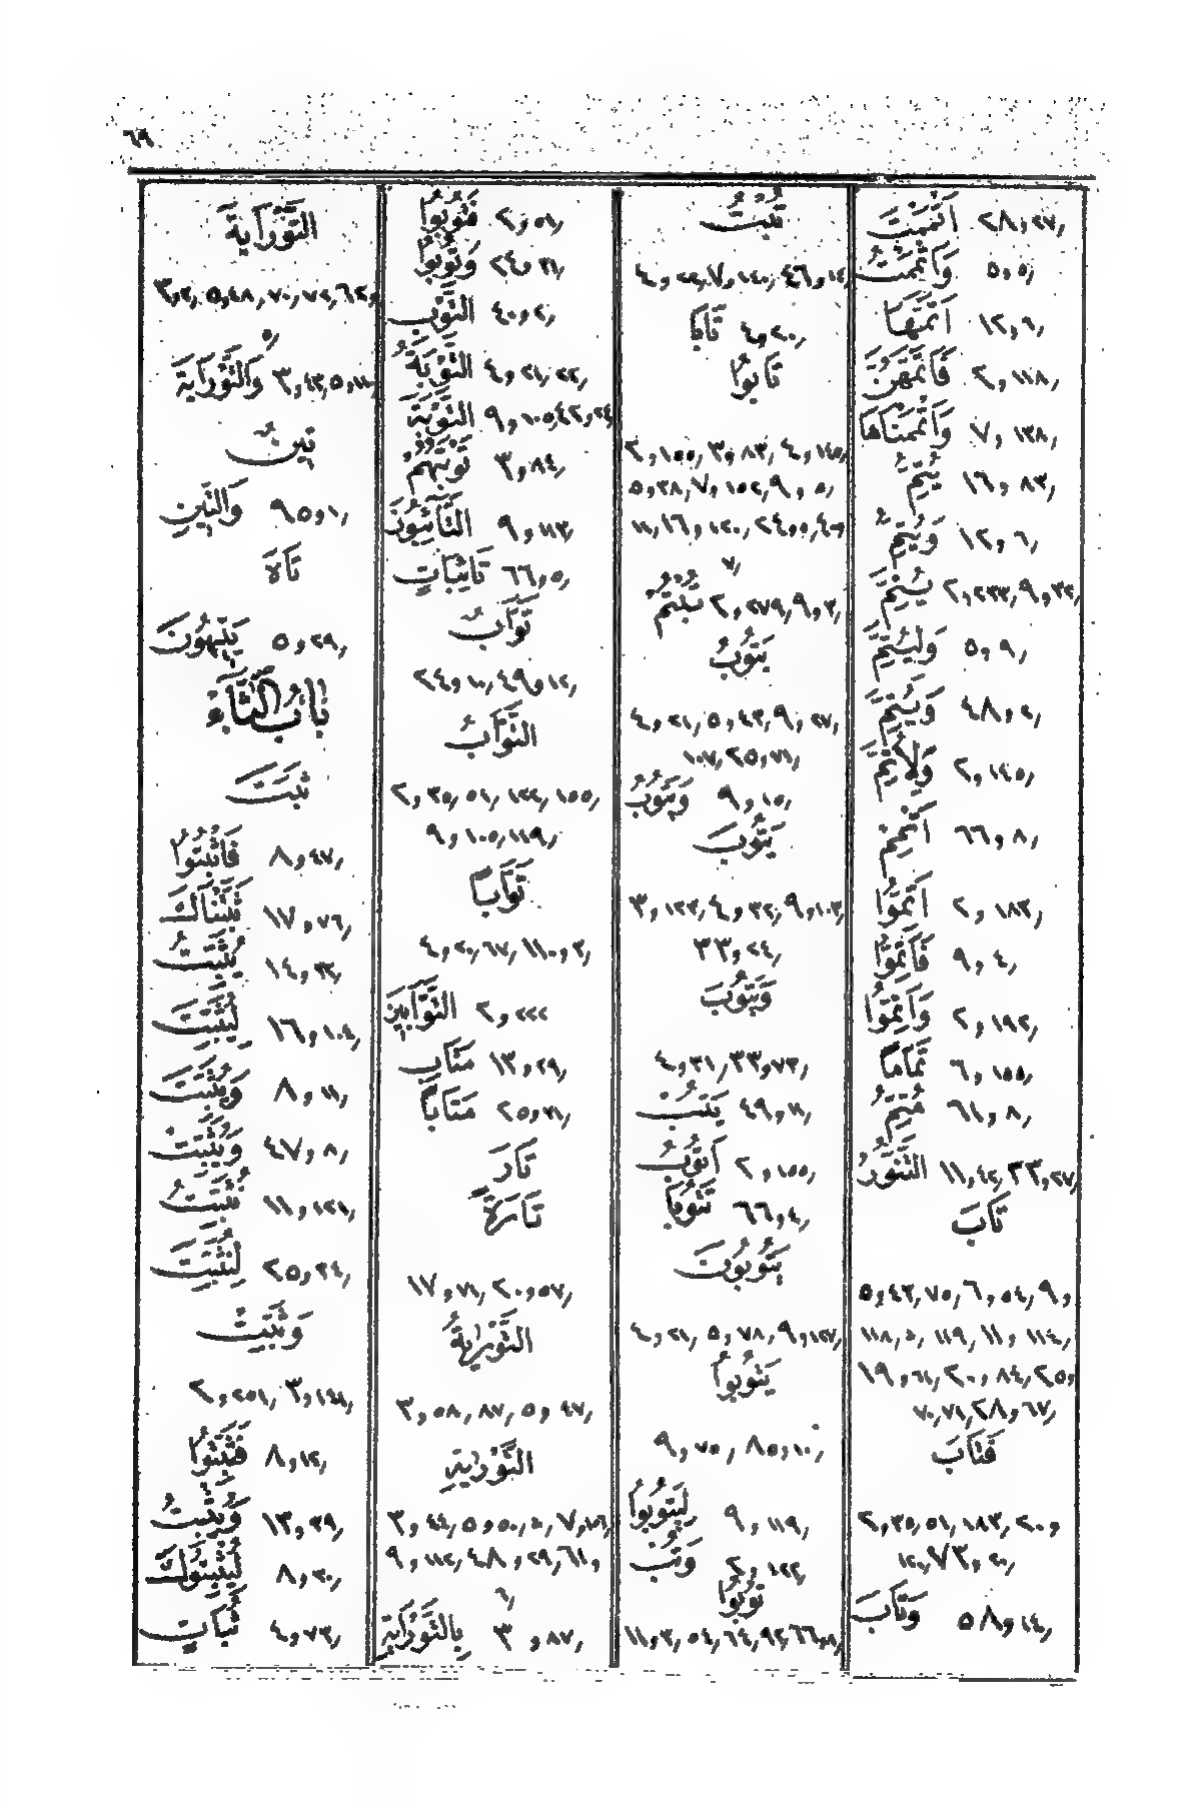 ٦٩
اَتْمَمْتَ ٢٨,٢٧
وَاَتْمَمْتُ ٥,٥
اَتَمَّهَا ١٢,٦
فَاَتَمَّهُنَّ ٢,١١٨
وَاَتْمَمْنَاهَا ٧,١٣٨
يُتِمُّ ١٦,٨٣
وَيُتِمُّ ١٢,٦
يُتِمَّ ٢,٢٣٣,٩,٣٢
وَلِيُتِمَّ ٥,٩
وَيُتِمَّ ٤٨,٢
وَلِاُتِمَّ ٢,١٤٥
اَتْمِمْ ٦٦,٨
اَتِمُّوا ٢,١٨٣
فَاَتِمُّوا ٩,٤
وَاَتِمُّوا ٢,١٩٢
تَمَاماً ٦,١٥٥
مُتِمُّ ٦١,٨
التَّنُّورُ ١١,٤٢,٢٣,٢٧
تَابَ
٥,٤٣,٧٥,٦,٥٤,٩,
١١٨,٠, ١١٩, ١١, ١١٤,
١٩,٦١,٢٠,٨٤,٢٥,
٧٠,٧١,٢٨,٦٧,
فَتَابَ
٢,٣٥,٥١,١٨٣,٢٠,
١٢٠,٧٣,٢٠,
وَتَابَ ٥٨,١٤,
تُبْتُ
٤,٢٢,٧,١٤٠,٤٦,١٤
تَابَا ٤,٢٠,
تَابُوا
٢,١٥٥,٣,٨٣,٤,١٤٥,
٥,٣٨,٧,١٥٢,٩,٥,
١١,١٦,١٢٠,٢٤,٥,٤٠,
٧,
تُبْتُمْ ٢,٢٧٩,٩,٣,
يَتُوبُ
٤,٢١,٥,٤٣,٩,٢٧,
١٠٧,٢٥,٧١,
وَيَتُوبُ ٩,١٥,
يَتُوبَ
٣,١٢٣,٤,٣٢,٩,١٠٣,
٣٣,٢٤,
وَيَتُوبَ
٤,٣١,٣٣,٧٣,
يَتُبْ ٤٩,١١,
اَتُوبُ ٢,١٥٥,
تَتُوبَا ٦٦,٤,
يَتُوبُونَ
٤,٢١,٥,٧٨,٩,١٢٧,
يَتُوبُوا
٩,٧٥,٨٥,١٠,
لِيَتُوبُوا ٩,١١٩,
وَتُبْ ٢,١٢٢,
تُوبُوا
١١,٣,٥٤,٦٤,٩٢,٦٦,٨,
فَتُوبُوا ٢,٥١,
وَتُوبُوا ٢٤,٣١,
التَّوْبِ ٤٠,٢,
التَّوْبَةُ ٤,٢١,٢٢,
التَّوْبَةَ ٩,١٠٥,٤٢,٢٤
تَوْبَتُهُمْ ٣,٨٤,
التَّائِبُونَ ٩,١١٣,
تَائِبَاتٍ ٦٦,٥,
تَوَّابٌ
٢٤,١٠,٤٩,١٢,
التَّوَّابُ
٢,٣٥,٥١,١٢٢,١٥٥,
٩,١٠٥,١١٩,
تَوَّاباً
٤,٢٠,٦٧,١١٠,٣,
التَّوَّابِينَ ٢,٢٢٢
مَتَابِ ١٣,٢٩,
مَتَاباً ٢٥,٧١,
تَارَ
تَارَةً
١٧,٧١,٢٠,٥٧,
التَّوْرٰيةُ
٣,٥٨,٨٧,٥,٤٧,
التَّوْرٰيةِ
٣,٤٤,٥,٥٠,٠,٧,١٥٦,
٩,١١٢,٤٨,٢٩,٦١,
٦,
بِالتَّوْرٰيةِ ٣,٨٧,
التَّوْرٰيةَ
٣,٢,٥,٤٨,٧٠,٧٢,٦٢,
٥,
وَالتَّوْرٰيةَ ٣,٤٣,٥,١١,
تِينٌ
وَالتِّينِ ٩٥,١,
تَاهَ
يَتِيهُونَ ٥,٢٩,
بَابُ الثَّاءِ
ثَبَتَ
فَاثْبُتُوا ٨,٤٧,
ثَبَّتْنَاكَ ١٧,٧٦,
يُثَبِّتُ ١٤,٣٢,
لِيُثَبِّتَ ١٦,١٠٤,
وَيُثَبِّتَ ٨,١١,
وَيُثَبِّتْ ٤٧,٨,
نُثَبِّتُ ١١,١٢١,
لِنُثَبِّتَ ٢٥,٣٤,
وَثَبِّتْ
٢,٢٥١,٣,١٤١,
فَثَبِّتُوا ٨,١٢,
وَيُثْبِتُ ١٣,٣٩,
لِيُثْبِتُوكَ ٨,٣٠,
ثُبَاتٍ ٤,٧٣,